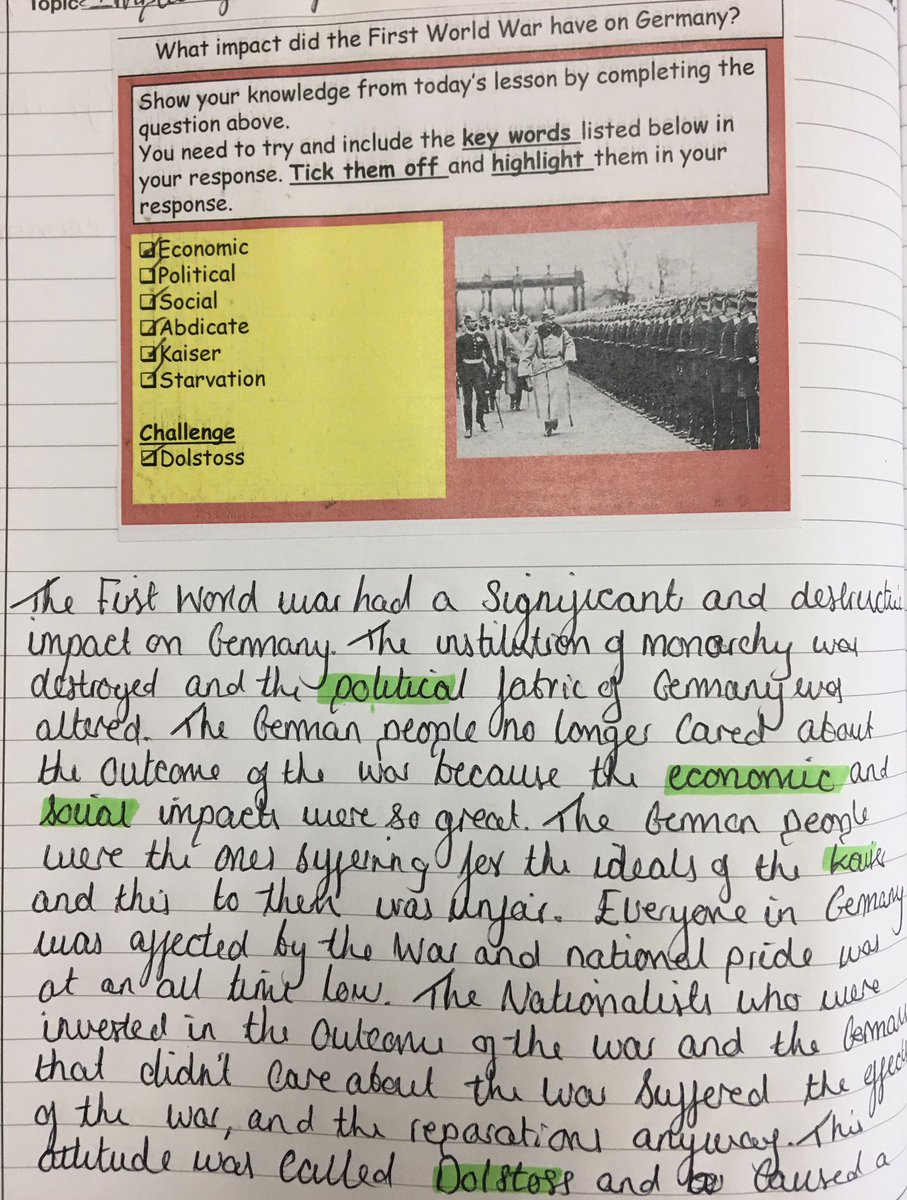 Topic:
What impact did the First World War have on Germany?
Show your knowledge from today's lesson by completing the
question above.
You need to try and include the key words listed below in
your response. Tick them off and highlight them in your
response.
Economic
Political
Social
Abdicate
Kaiser
Starvation
Challenge
Dolstoss
The First World war had a significant and destructive
impact on Germany. The institution of monarchy was
destroyed and the political fabric of Germany was
altered. The German people no longer cared about
the outcome of the war because the economic and
social impacts were so great. The German people
were the ones suffering for the ideals of the kaiser
and this to them was unfair. Everyone in Germany
was affected by the war and national pride was
at an all time low. The Nationalists who were
invested in the outcome of the war and the German
that didn't care about the war suffered the effects
of the war, and the reparations anyway. This
attitude was called Dolstoss and caused a